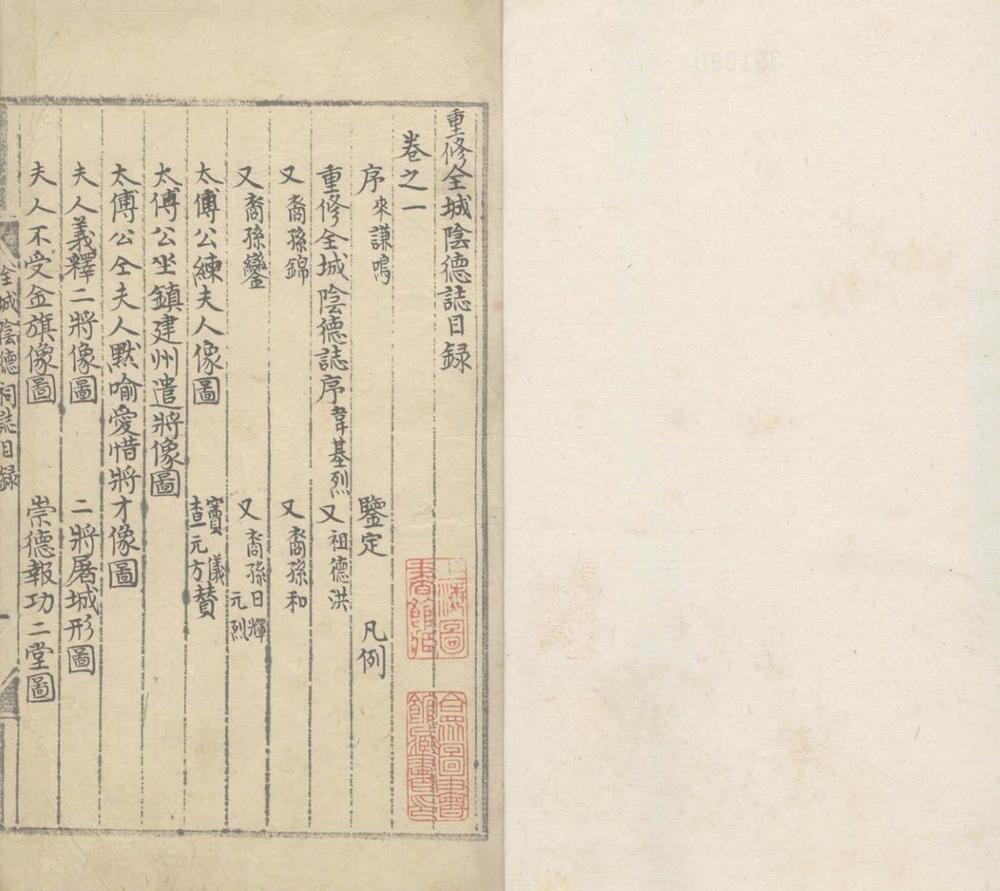 重修全城陰德誌目録
卷之一
序 來謙鳴 鑒定 凡例
重修全城陰德誌序 韋基烈 又 祖德洪
又 裔孫錦 又 裔孫和
又 裔孫鑾 又 裔孫日輝 元烈
太傅公練夫人像圖 竇儀 查元方 贊
太傅公坐鎮建州遣將像圖
太傅公仝夫人默喻愛惜將才像圖
夫人義釋二將像圖 二將屠城形圖
夫人不受金旗像圖 崇德報功二堂圖
全城陰德祠誌目録
上海圖書館藏
合衆圖書館藏書印